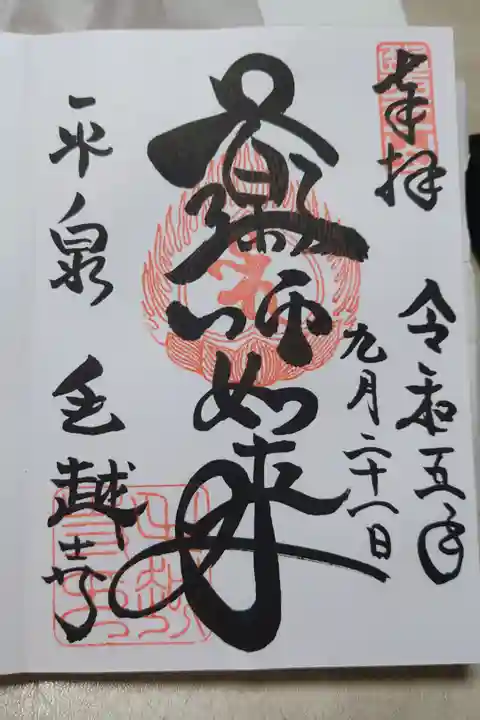 奉拝
令和五年
九月二十一日
藥師如来
平泉 毛越寺